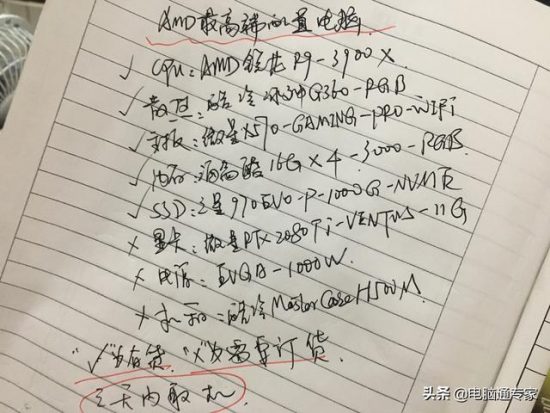 AMD最高端配置电脑
√ CPU:AMD锐龙R9-3900X
√ 散热:酷冷冰神G360-RGB
√ 主板:微星X570-GAMING-PRO-WIFI
√ 内存:海盗船16G×4-3000-RGB
√ SSD:三星970EVO-P-1000G-NVME
× 显卡:微星RTX2080Ti-VENTUS-11G
× 电源:EVGA-1000W
× 机箱:酷冷MasterCase H500M
"√"为有货 "×"为需要订货
三天内取机
头条 @电脑通专家